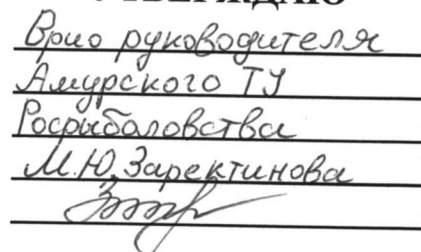 УТВЕРЖДАЮ
Врио руководителя
Амурского ТУ
Росрыболовства
М.Ю. Заректинова